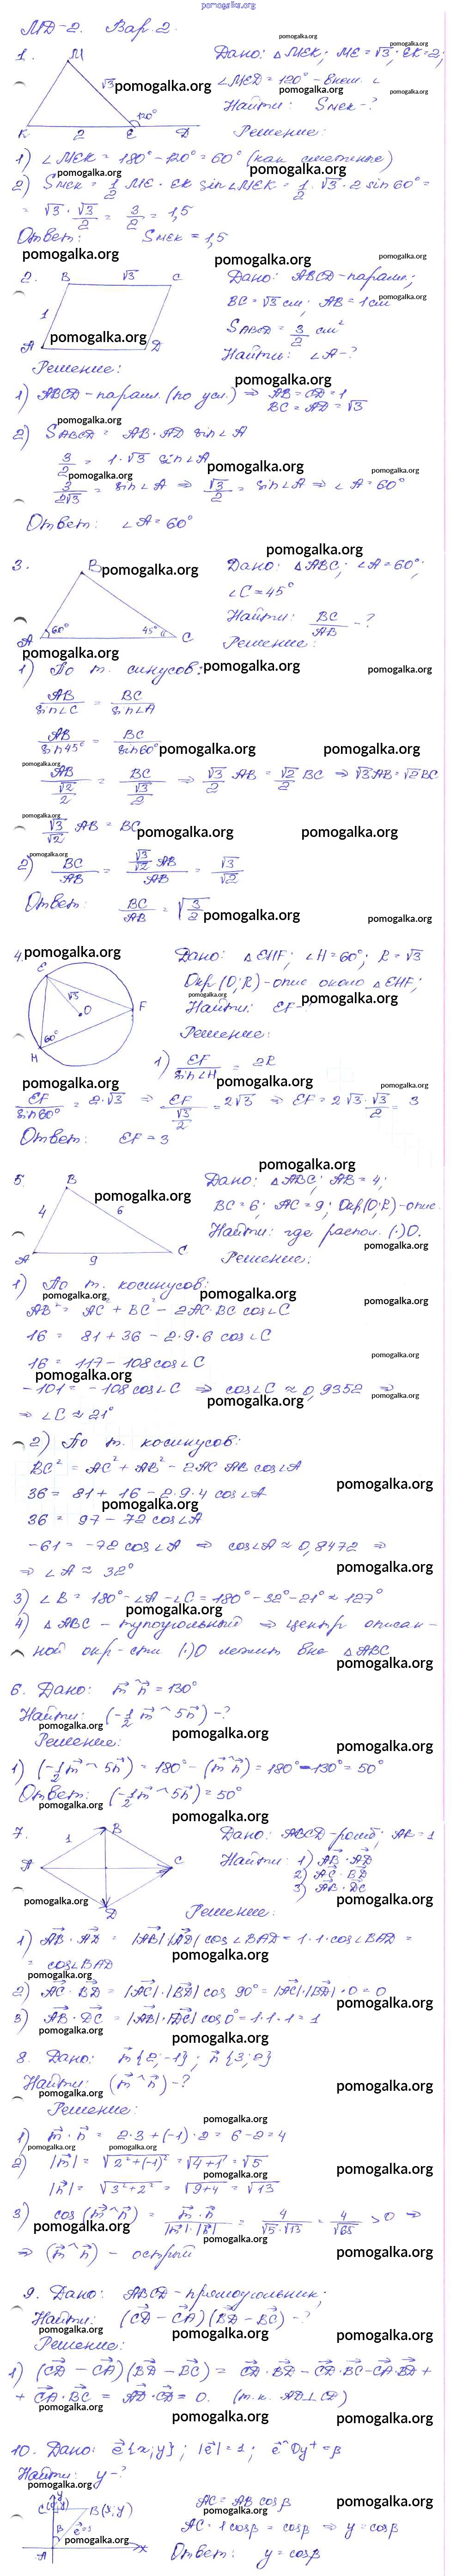 pomogalka.org
МД-2. Вар. 2.
1. Дано: △MEK; ME = √3; EK = 2;
∠MED = 120° - внеш. ∠
Найти: S_MEK - ?
Решение:
M √3 120° K 2 E D
1) ∠MEK = 180° - 120° = 60° (как смежные)
2) S_MEK = 1/2 ME · EK sin∠MEK = 1/2 · √3 · 2 sin 60° =
= √3 · √3/2 = 3/2 = 1,5
Ответ: S_MEK = 1,5
2. Дано: ABCD - паралл;
BC = √3 см; AB = 1 см
S_ABCD = 3/2 см²
Найти: ∠A - ?
B √3 C 1 A D
Решение:
1) ABCD - паралл. (по усл.) ⇒ AB = CD = 1
BC = AD = √3
2) S_ABCD = AB · AD sin∠A
3/2 = 1 · √3 sin∠A
3/2√3 = sin∠A ⇒ √3/2 = sin∠A ⇒ ∠A = 60°
Ответ: ∠A = 60°
3. Дано: △ABC; ∠A = 60°;
∠C = 45°
Найти: BC/AB - ?
Решение:
B A 60° 45° C
1) По т. синусов:
AB/sin∠C = BC/sin∠A
AB/sin45° = BC/sin60°
AB/(√2/2) = BC/(√3/2) ⇒ √3/2 AB = √2/2 BC ⇒ √3AB = √2BC
√3/√2 AB = BC
2) BC/AB = (√3/√2 AB)/AB = √3/√2
Ответ: BC/AB = √(3/2)
4. Дано: △EHF; ∠H = 60°; R = √3
Окр(O;R) - опис около △EHF;
Найти: EF-
Решение:
E √3 O F 60° H
1) EF/sin∠H = 2R
EF/sin60° = 2·√3 ⇒ EF/(√3/2) = 2√3 ⇒ EF = 2√3 · √3/2 = 3
Ответ: EF = 3
5. Дано: △ABC; AB = 4;
BC = 6; AC = 9; Окр(O;R) - опис.
Найти: где распол. (·)O.
Решение:
B 4 6 A 9 C
1) По т. косинусов:
AB² = AC² + BC² - 2AC·BC cos∠C
16 = 81 + 36 - 2·9·6 cos∠C
16 = 117 - 108cos∠C
-101 = -108cos∠C ⇒ cos∠C ≈ 0,9352 ⇒
⇒ ∠C ≈ 21°
2) По т. косинусов:
BC² = AC² + AB² - 2AC AB cos∠A
36 = 81 + 16 - 2·9·4 cos∠A
36 = 97 - 72 cos∠A
-61 = -72 cos∠A ⇒ cos∠A ≈ 0,8472 ⇒
⇒ ∠A ≈ 32°
3) ∠B = 180° - ∠A - ∠C = 180° - 32° - 21° ≈ 127°
4) △ABC - тупоугольный ⇒ центр описан-
ной окр-сти (·)O лежит вне △ABC
6. Дано: m⃗ ^ n⃗ = 130°
Найти: (-1/2 m⃗ ^ 5n⃗) - ?
Решение:
1) (-1/2 m⃗ ^ 5n⃗) = 180° - (m⃗ ^ n⃗) = 180° - 130° = 50°
Ответ: (-1/2 m⃗ ^ 5n⃗) = 50°
7. Дано: ABCD - ромб; AB = 1
Найти: 1) AB⃗ · AD⃗
2) AC⃗ · BD⃗
3) AB⃗ · DC⃗
B 1 A C D
Решение:
1) AB⃗ · AD⃗ = |AB⃗|·|AD⃗| cos∠BAD = 1·1·cos∠BAD =
= cos∠BAD
2) AC⃗ · BD⃗ = |AC⃗|·|BD⃗| cos 90° = |AC⃗|·|BD⃗| · 0 = 0
3) AB⃗ · DC⃗ = |AB⃗|·|DC⃗| cos 0° = 1·1·1 = 1
8. Дано: m⃗ {2; -1}; n⃗ {3; 2}
Найти: (m⃗ ^ n⃗) - ?
Решение:
1) m⃗ · n⃗ = 2·3 + (-1)·2 = 6 - 2 = 4
2) |m⃗| = √(2² + (-1)²) = √(4+1) = √5
|n⃗| = √(3² + 2²) = √(9+4) = √13
3) cos (m⃗ ^ n⃗) = m⃗ · n⃗/|m⃗|·|n⃗| = 4/√5·√13 = 4/√65 > 0 ⇒
⇒ (m⃗ ^ n⃗) - острый
9. Дано: ABCD - прямоугольник;
Найти: (CD⃗ - CA⃗)(BD⃗ - BC⃗) - ?
Решение:
1) (CD⃗ - CA⃗)(BD⃗ - BC⃗) = CD⃗ · BD⃗ - CD⃗ · BC⃗ - CA⃗ · BD⃗ +
+ CA⃗ · BC⃗ = AD⃗ · CD⃗ = 0. (т.к. AD⊥CD)
10. Дано: e⃗ {x; y}; |e⃗| = 1; e⃗ ^ Oy⁺ = β
Найти: y - ?
AC = AB cosβ
AC = 1 cosβ = cosβ ⇒ y = cosβ
Ответ: y = cosβ